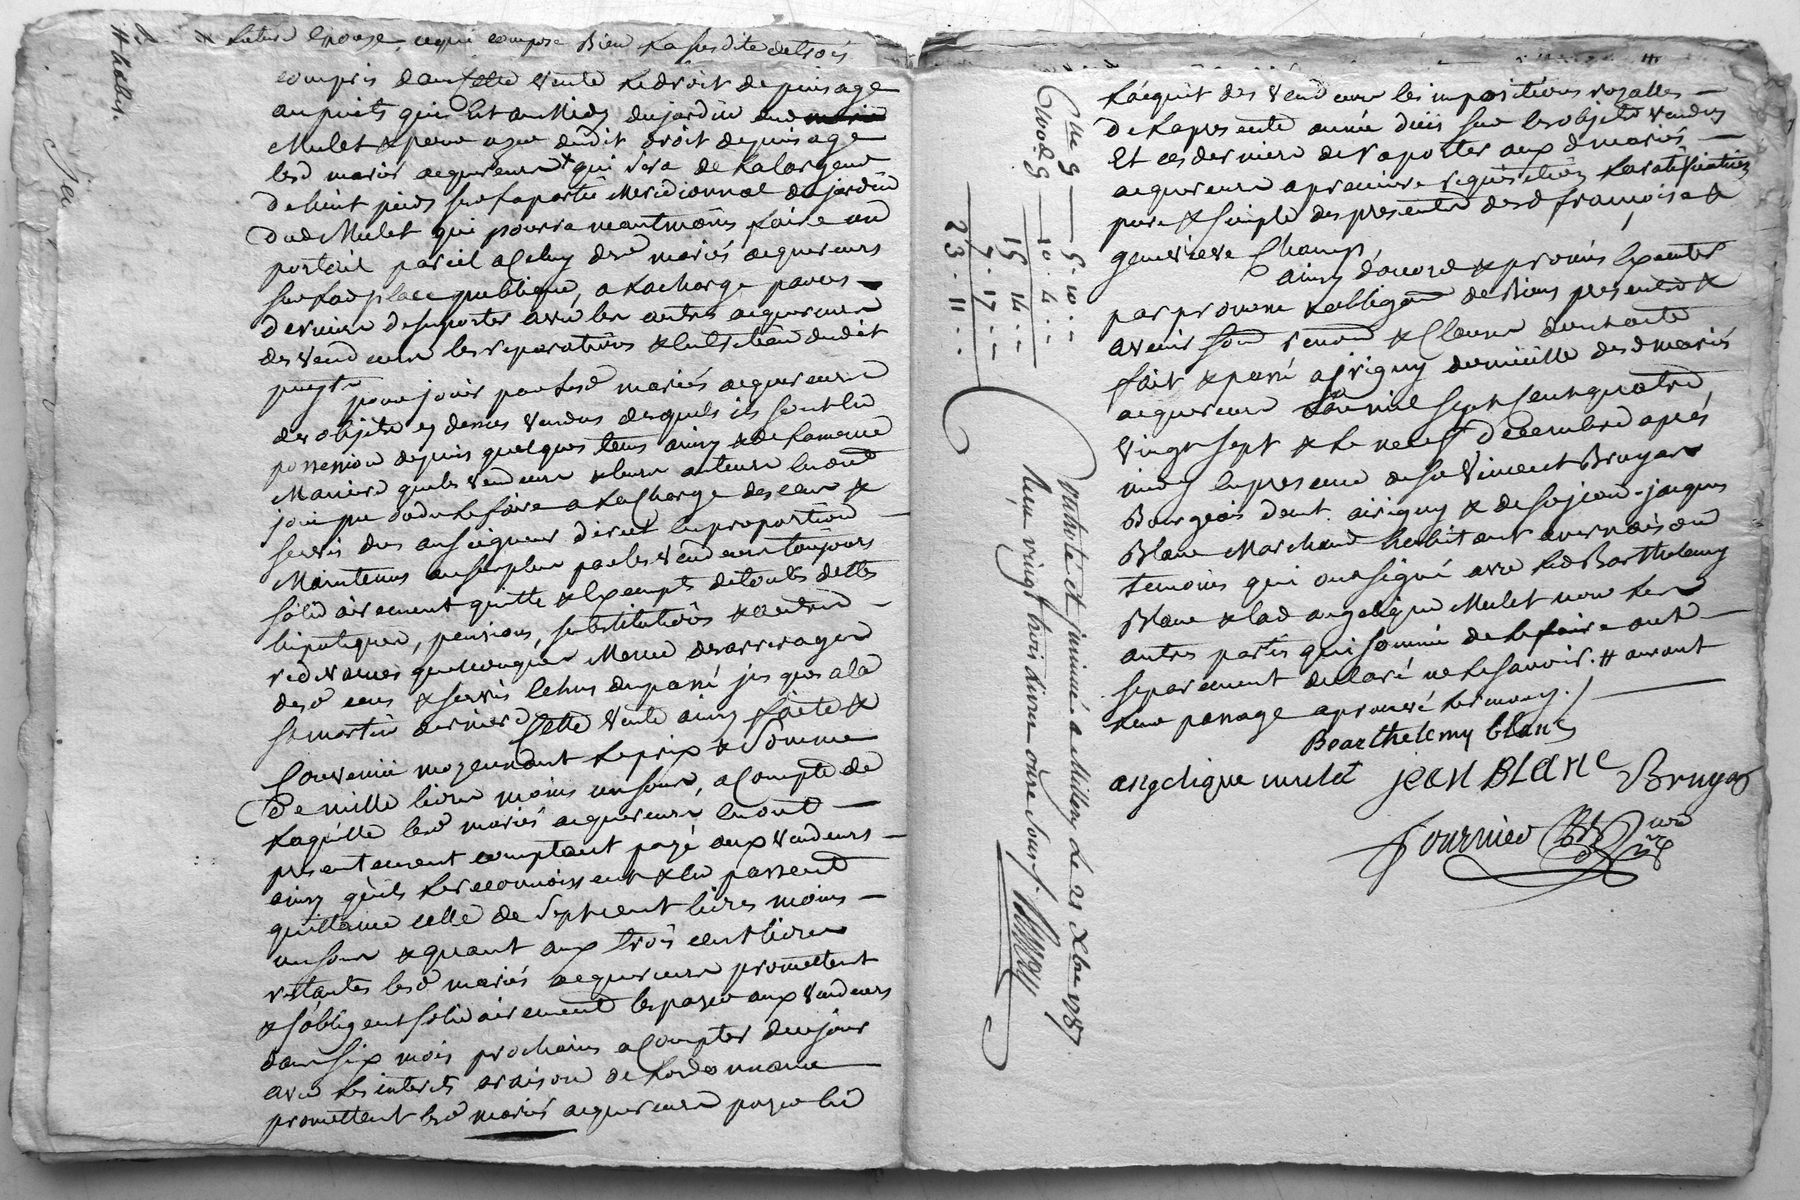 future Epouse, ce qui compose Bien
compris dans cette vente le droit de puisage
au puits qui Est au Midy du jardin
Mulet & pour user dudit droit de puisage
lesd mariés acquereurs qui sera de la largeur
de huit pieds sur la partie Meridionnal du jardin
dud Mulet qui pourra neantmoins faire un
portail pareil a Celuy desd mariés acquereurs
sur lad place publique, a la charge par ces
derniers de suporter avec les autres acquereurs
des vendeurs les reparations & entretien dudit
puys pour jouir par lesd mariés acquereurs
des objets cy dessus vendus desquels ils sont en
possession depuis quelques tems ainsy & de la meme
Maniere que les vendeurs & leurs auteurs en ont
joui pu ou du le faire a la Charge des cens &
servis dus au seigneur direct en proportion
Maintenus au surplus par les vendeurs toujours
solidairement quitte & Exempts de toutes dettes
hipoteques, pensions, substitutions & autres
redevances quelconques Meme des arrerages
desd cens & servis echus du passé jusques a la
st martin derniere Cette vente ainsy faite &
Convenüe moyennant le prix & somme
De mille livres moins un sour, a Compte de
laquelle lesd mariés acquereurs en ont
presentement comptant payé aux vendeurs
ainsy qu'ils le reconnoissent & en passent
quittance celle de sept cent livres moins
un sour & quant aux trois cent livres
restantes lesd mariés acquereurs promettent
& s'obligent solidairement les payer aux vendeurs
dans six mois prochains a Compter de ce jour
avec les interets a raison de l'ordonnance
promettent lesd mariés acquereurs payer en
l'acquit des vendeurs les impositions royalles
de la presente année dües sur les objets vendus
Et ces derniers de raporter aux d mariés
acquereurs a premiere requisition la ratification
pure & simple des presentes desd françoise &
genevieve Champ,
ainsy d'accord & promis Executer
par promesse & obligaõn de Biens presents &
avenir soũ renonõ & Clauses dont acte
fait & passé a jrigny domicille desd mariés
acquereurs l'an mil sept Cent quatre
vingt sept & le neuf decembre après
midy En presence de sr Vincent Bruyas
Bourgeois dud. airigny & de sr jean-jacques
Blanc Marchand habitant a vernaison
temoins qui ont signé avec led Barthelemy
Blanc & lad angelique Mulet non les
autres partis qui sommé de le faire ont
separement declaré ne le savoir. # avant
leur passage aprouvé les mots.
Barthelemy blanc
angelique mulet jean BLANC Bruyas
fournier
5 . 10 . -
10 . 4 . -
15 . 14 . -
7 . 17 . -
23 . 11 . -
Contrôlé et insinué a Millery le 21 Xbre 1787.
Reçu vingt trois livres onze sous.